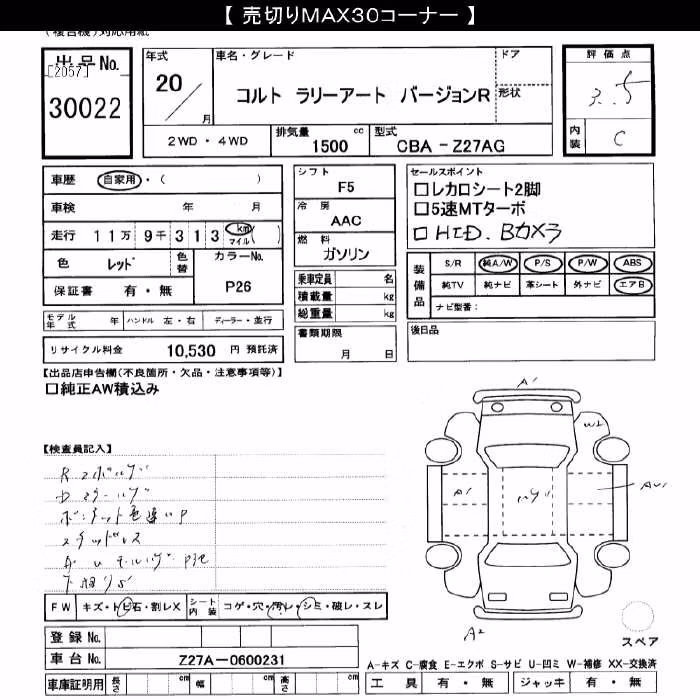 【 売切りMAX30コーナー 】
(複合機)対応用紙
出品No.
[2057]
30022
年式
20
月
車名・グレード
コルト ラリーアート バージョンR
ドア
形状
2WD・4WD
排気量
1500 cc
型式
CBA - Z27AG
評価点
3.5
内装
C
車歴
自家用・( )
車検 年 月
走行 11万 9千 3 1 3 km マイル ( )
色 レッド
色替
カラーNo.
P26
保証書 有・無
モデル年式 年
ハンドル 左・右
ディーラー・並行
リサイクル料金 10,530 円 預託済
シフト
F5
冷房
AAC
燃料
ガソリン
乗車定員 名
積載量 kg
総重量 kg
書類期限
月 日
セールスポイント
□レカロシート2脚
□5速MTターボ
□HID. Bカメラ
装備品
S/R 純A/W P/S P/W ABS
純TV 純ナビ 革シート 外ナビ エアB
ナビ型番:
後日品
【出品店申告欄(不良箇所・欠品・注意事項等)】
□純正AW積込み
【検査員記入】
ボンネット色違いP
FW
キズ・トビ石・割レX
シート内装
コゲ・穴・汚レ・シミ・破レ・スレ
登録No.
車台No.
Z27A-0600231
車庫証明用
長さ cm
幅 cm
高さ cm
A1
W2
A1
AU1
A2
スペア
A-キズ C-腐食 E-エクボ S-サビ U-凹ミ W-補修 XX-交換済
工具 有・無 ジャッキ 有・無